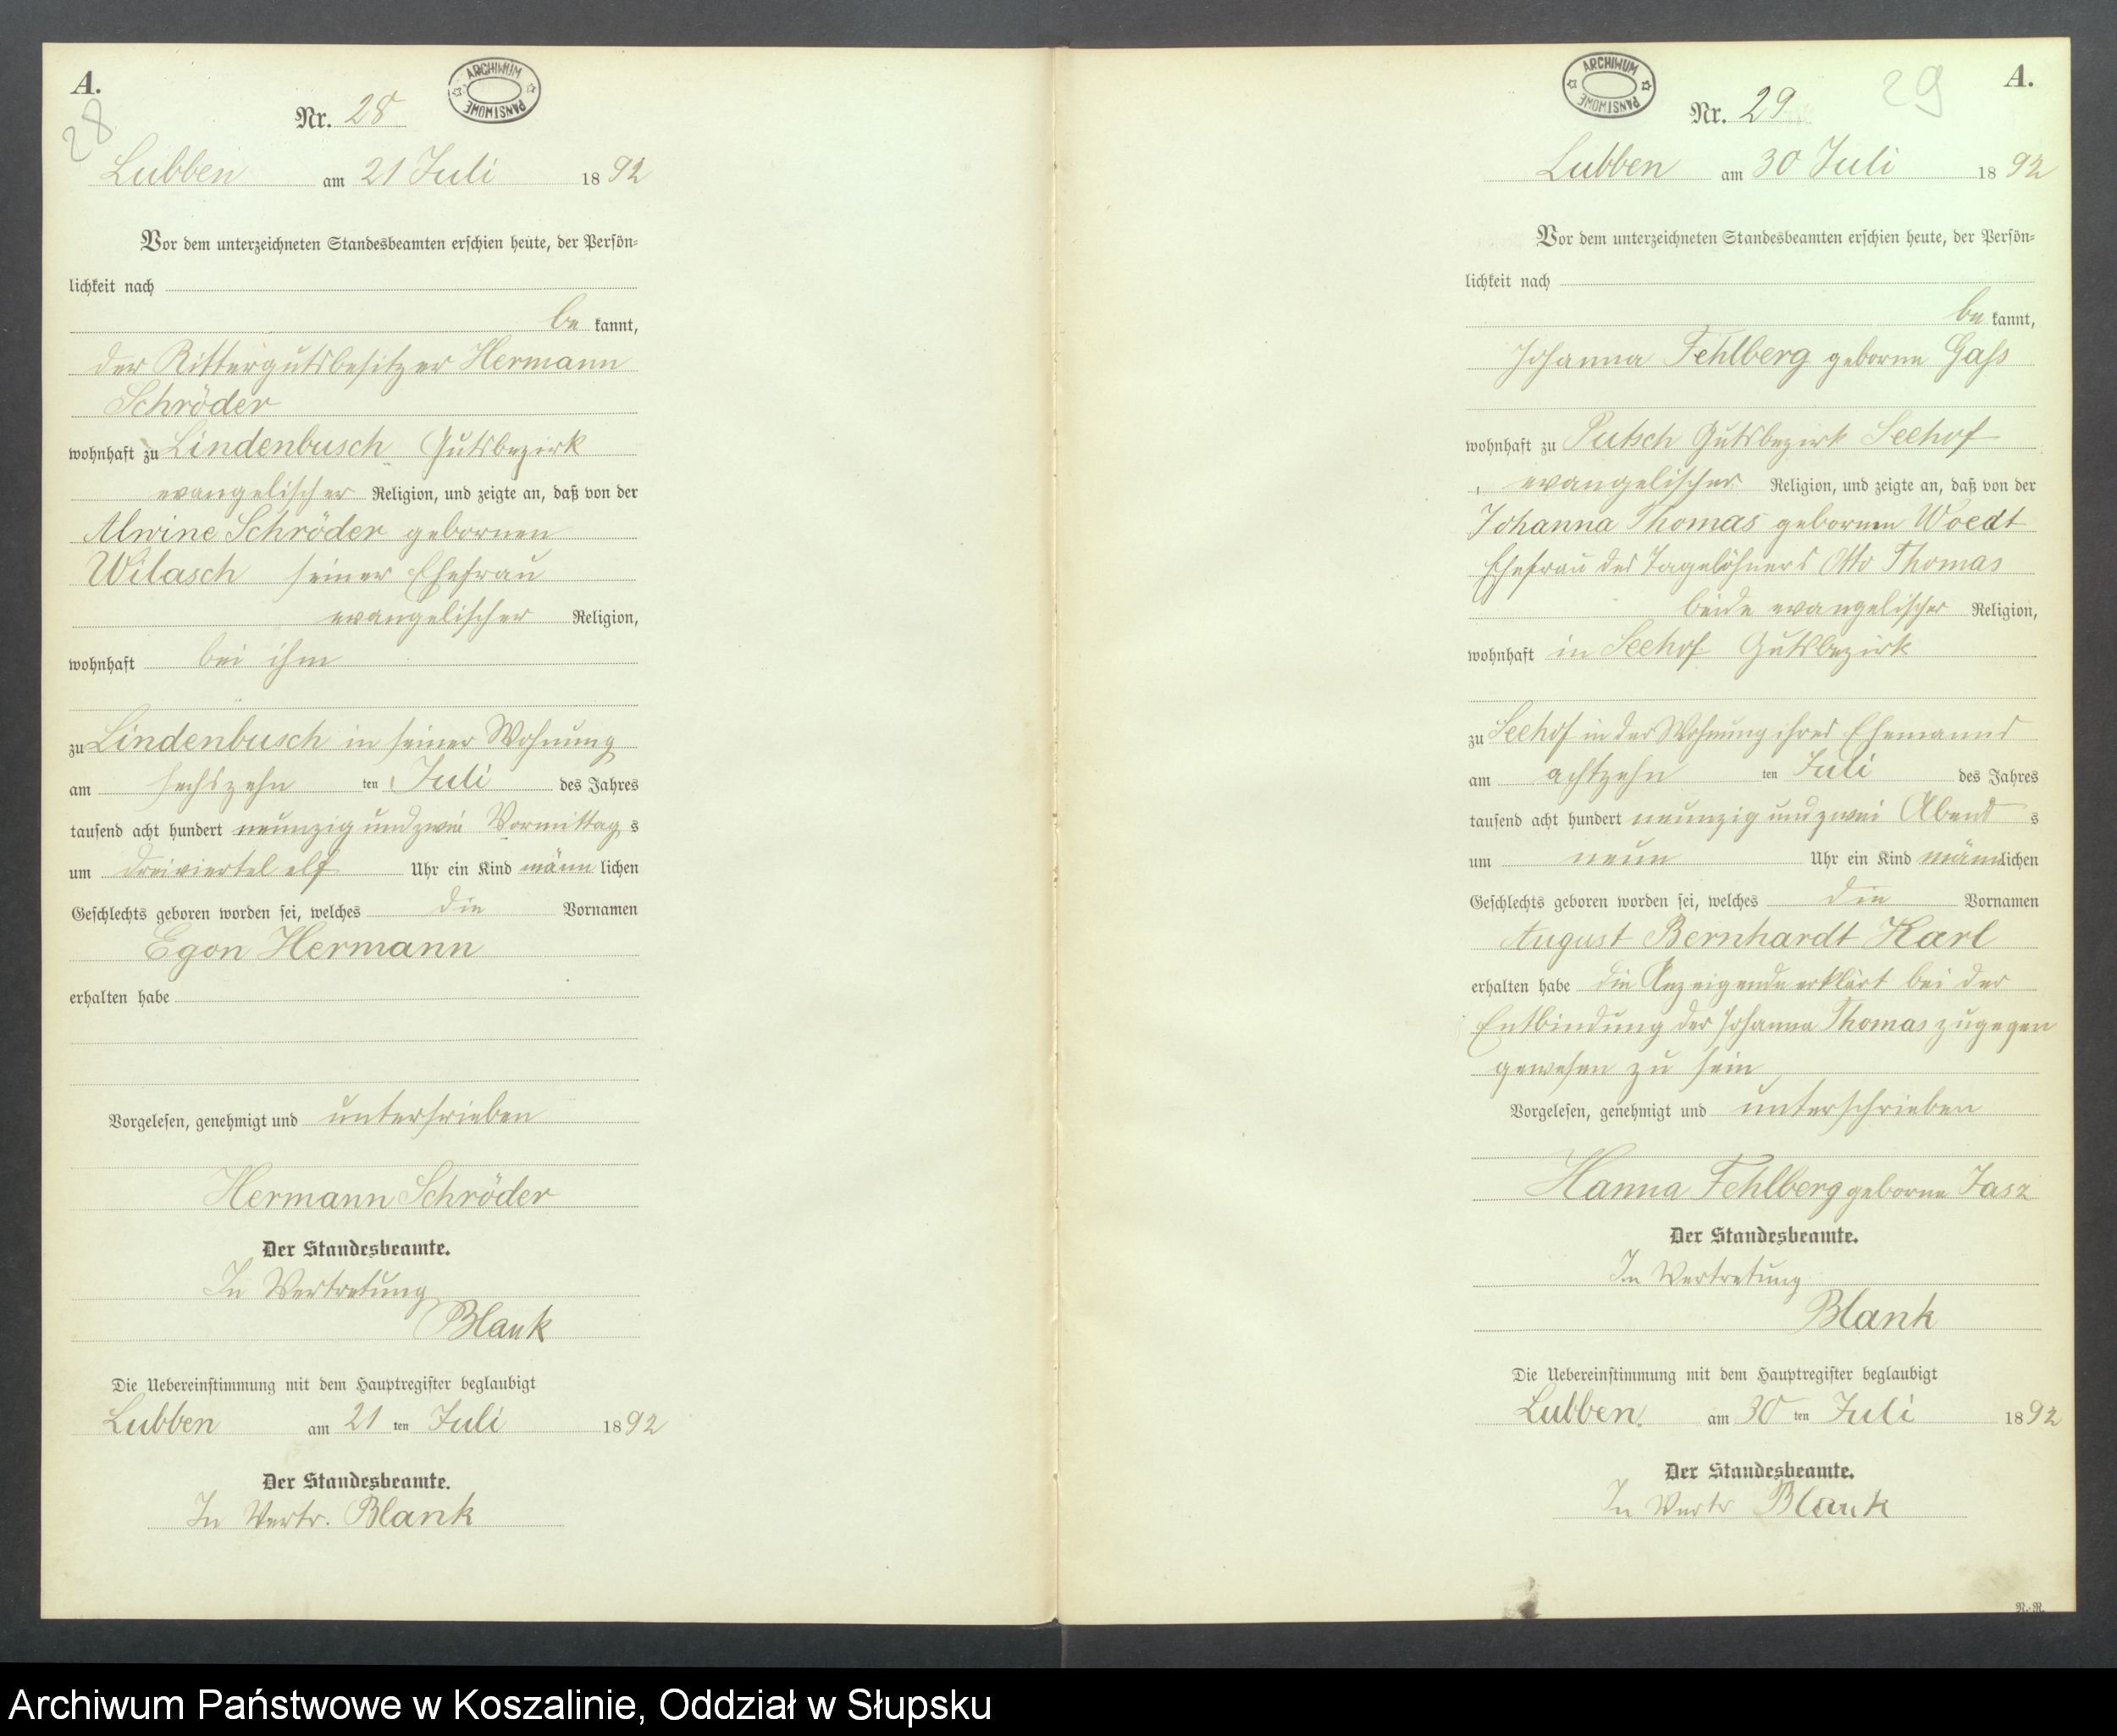 A.
28
Nr. 28
ARCHIWUM PAŃSTWOWE
Lubben am 21 Juli 1892
Vor dem unterzeichneten Standesbeamten erschien heute, der Persön-
lichkeit nach
be kannt,
der Rittergutsbesitzer Hermann
Schröder
wohnhaft zu Lindenbusch Gutsbezirk
evangelischer Religion, und zeigte an, daß von der
Alwine Schröder gebornen
Wilasch seiner Ehefrau
evangelischer Religion,
wohnhaft bei ihm
zu Lindenbusch in seiner Wohnung
am sechszehn ten Juli des Jahres
tausend acht hundert neunzig und zwei Vormittag s
um dreiviertel elf Uhr ein Kind männ lichen
Geschlechts geboren worden sei, welches die Vornamen
Egon Hermann
erhalten habe
Vorgelesen, genehmigt und unterschrieben
Hermann Schröder
Der Standesbeamte.
In Vertretung
Blank
Die Uebereinstimmung mit dem Hauptregister beglaubigt
Lubben am 21 ten Juli 1892
Der Standesbeamte.
In Vertr. Blank
ARCHIWUM PAŃSTWOWE
29
A.
Nr. 29
Lubben am 30 Juli 1892
Vor dem unterzeichneten Standesbeamten erschien heute, der Persön-
lichkeit nach
be kannt,
Johanna Fehlberg geborne Gass
wohnhaft zu Putsch Gutsbezirk Seehof
evangelischer Religion, und zeigte an, daß von der
Johanna Thomas gebornen Woedt
Ehefrau des Tagelöhners Otto Thomas
beide evangelischer Religion,
wohnhaft in Seehof Gutsbezirk
zu Seehof in der Wohnung ihres Ehemanns
am achtzehn ten Juli des Jahres
tausend acht hundert neunzig und zwei Abend s
um neun Uhr ein Kind männlichen
Geschlechts geboren worden sei, welches die Vornamen
August Bernhardt Karl
erhalten habe die Anzeigende erklärt bei der
Entbindung der Johanna Thomas zugegen
gewesen zu sein
Vorgelesen, genehmigt und unterschrieben
Hanna Fehlberg geborne Jasz
Der Standesbeamte.
In Vertretung
Blank
Die Uebereinstimmung mit dem Hauptregister beglaubigt
Lubben. am 30 ten Juli 1892
Der Standesbeamte.
In Vertr Blank
N.-R.
Archiwum Państwowe w Koszalinie, Oddział w Słupsku